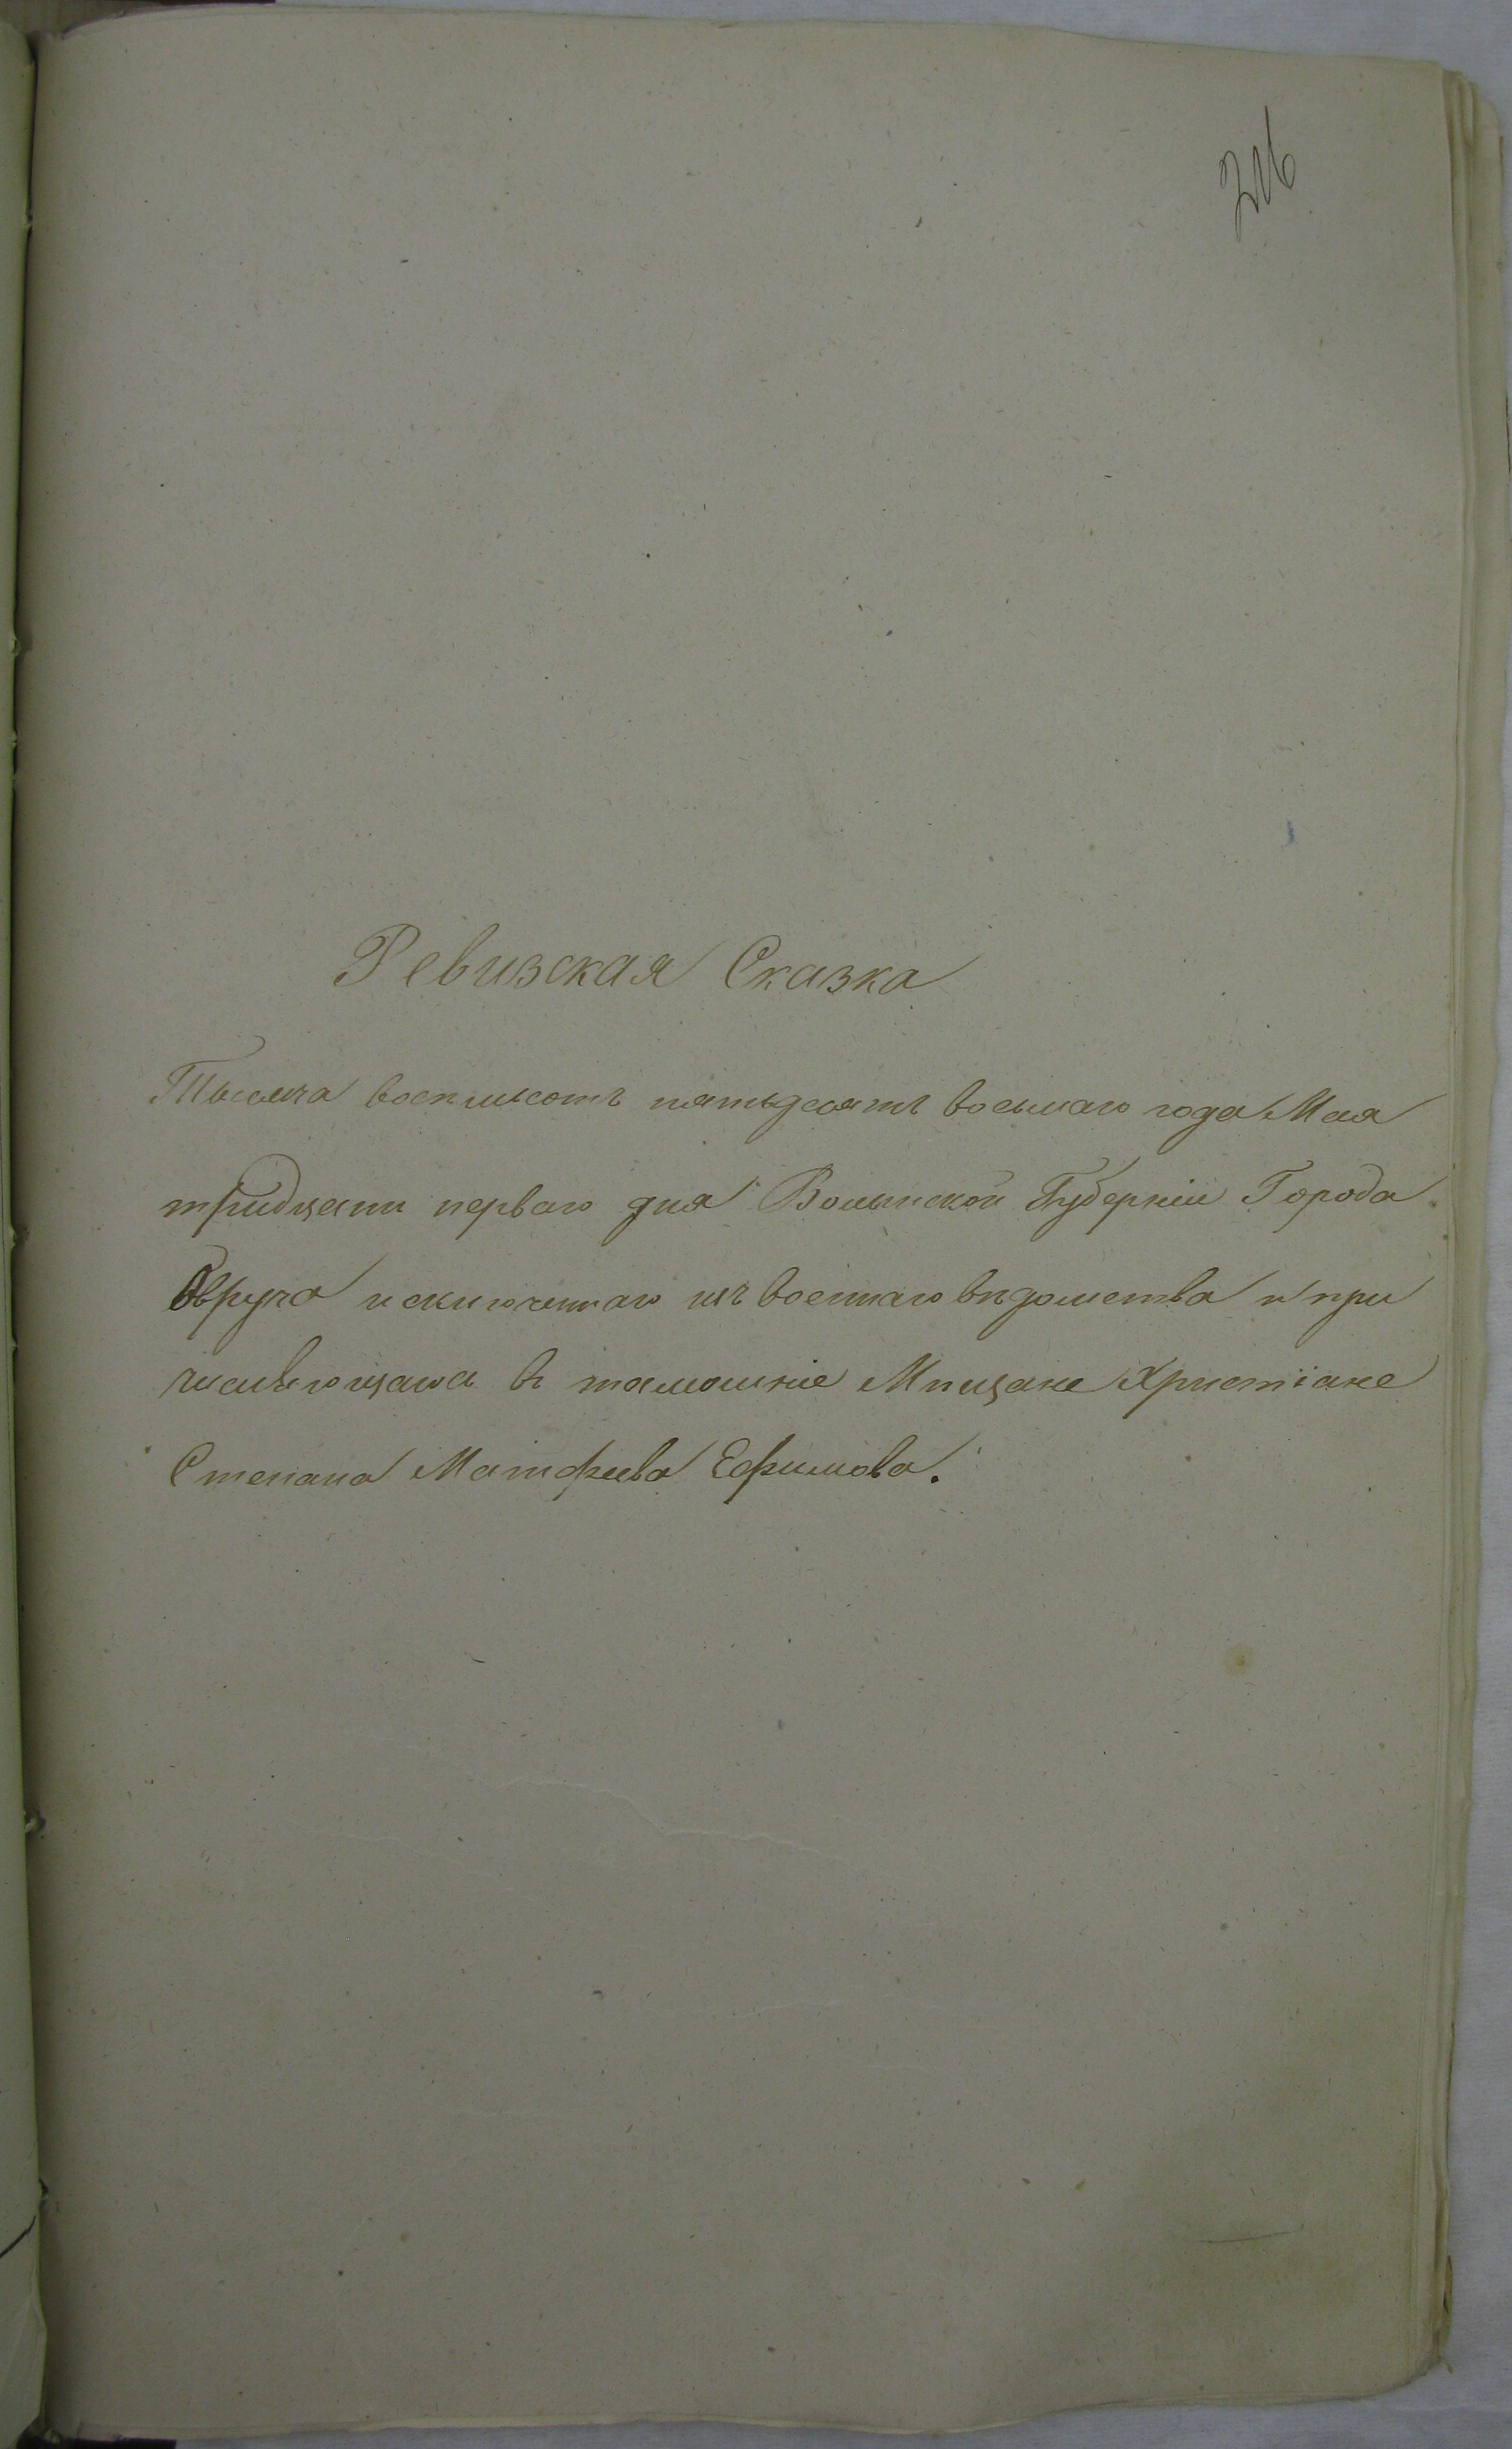 216
Ревизская Сказка
Тысяча восемьсотъ пятьдесятъ восьмаго года Мая
тридцать перваго дня Волынской Губерніи Города
Овруча исключеннаго изъ военнаго вѣдомства и при
числяющагося въ тамошніе Мѣщане Христіане
Степана Матфеева Ефимова.